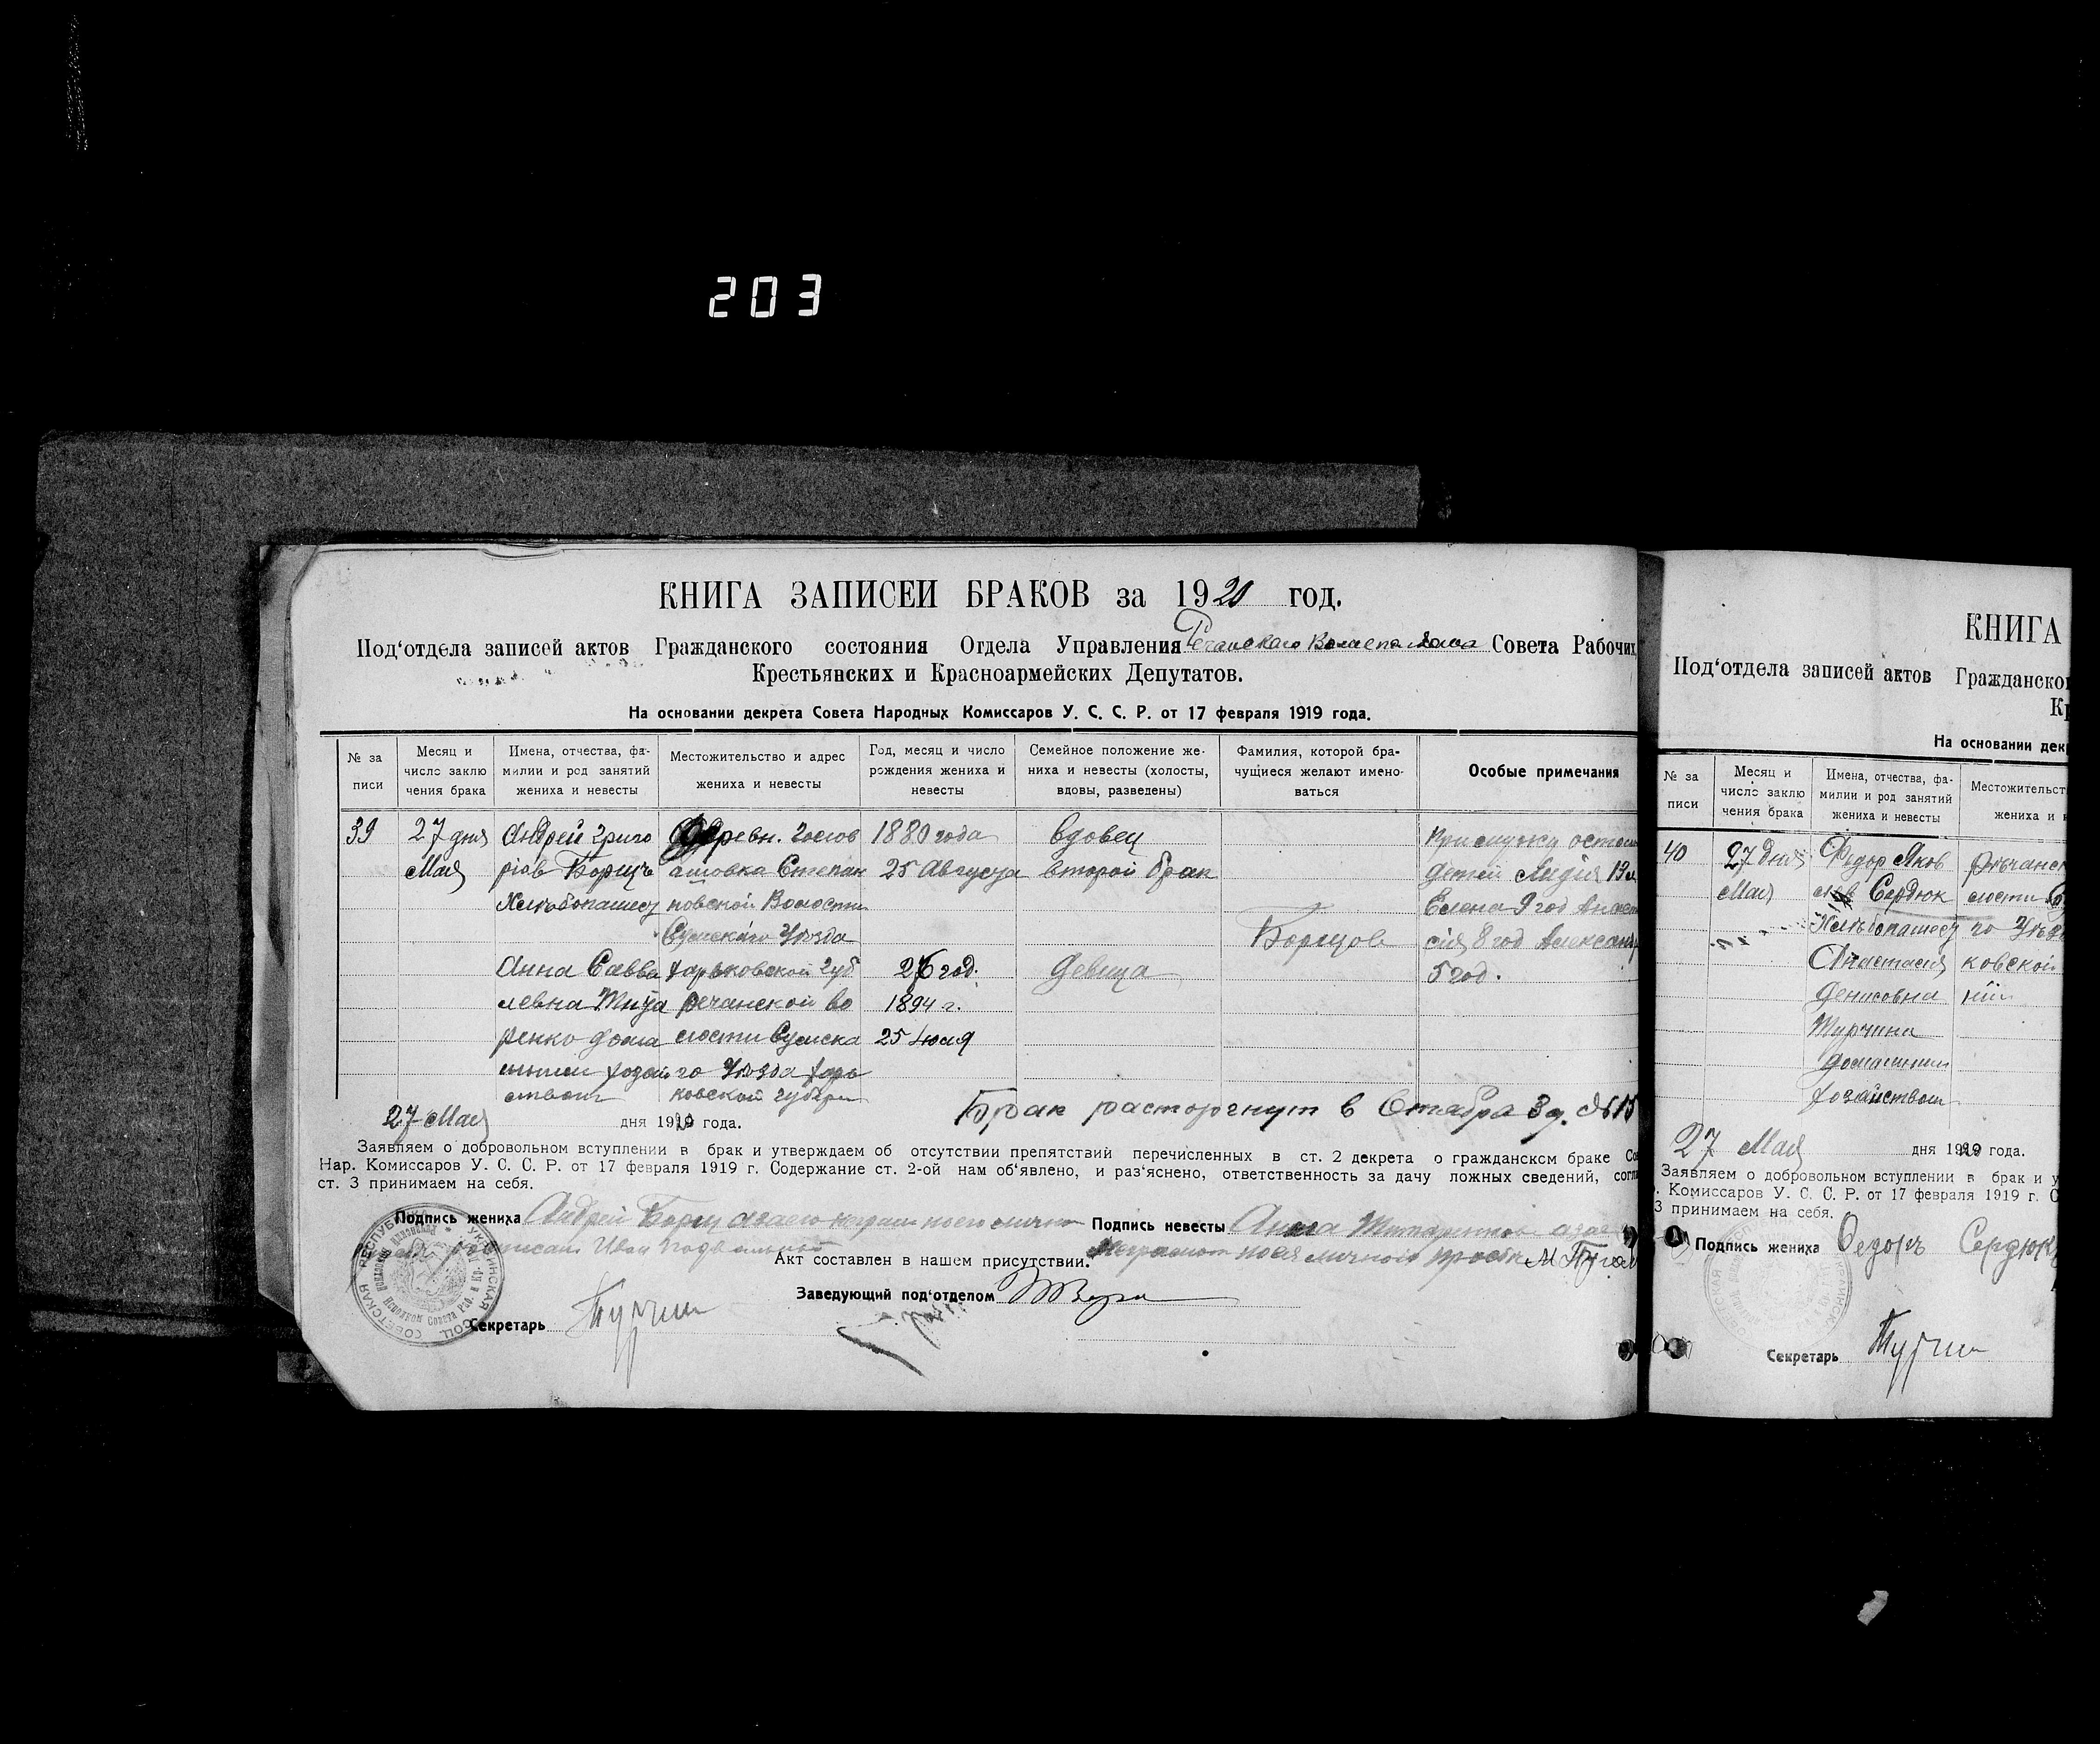 203
КНИГА ЗАПИСЕЙ БРАКОВ за 1920 год.
Под‘отдела записей актов Гражданского состояния Отдела Управления Речанскаго Совета Рабочих,
Крестьянских и Красноармейских Депутатов.
На основании декрета Совета Народных Комиссаров У. С. С. Р. от 17 февраля 1919 года.
№ за
писи
Месяц и
число заклю
чения брака
Имена, отчества, фа-
милии и род занятий
жениха и невесты
Местожительство и адрес
жениха и невесты
Год, месяц и число
рождения жениха и
невесты
Семейное положение же-
ниха и невесты (холосты,
вдовы, разведены)
Фамилия, которой бра-
чущиеся желают имено-
ваться
Особые примечания
39
27 дня
Мая
Андрей Григо
ріев Борщъ
Хлѣбопашец
Анна Савва
Деревн.
Степан
новской Волости
Сумскаго Уѣзда
Харьковской Губ
речанской во
лости Сумска
го Уѣзда Харь
ковской губерн
1880 года
25 Августа
26 год.
1894 г.
25 Июля
вдовец
второй брак
девица
Борщов
детей Лидия 13
Елена 9 год
сія 8 год Александр
5 год.
27 Мая дня 1920 года.
Брак расторгнут в
Заявляем о добровольном вступлении в брак и утверждаем об отсутствии препятствий перечисленных в ст. 2 декрета о гражданском браке Со
Нар. Комиссаров У. С. С. Р. от 17 февраля 1919 г. Содержание ст. 2-ой нам об‘явлено, и раз‘яснено, ответственность за дачу ложных сведений, согла
ст. 3 принимаем на себя.
Подпись жениха Андрей Борщ
Подпись невесты Анна
Иван
Акт составлен в нашем присутствии.
Заведующий под‘отделом
Секретарь Турчин
КНИГА
Под‘отдела записей актов Гражданског
Кр
На основании дек
№ за
писи
Месяц и
число заклю
чения брака
Имена, отчества, фа-
милии и род занятий
жениха и невесты
Местожительст
жениха и н
40
27 дня
Мая
Федор Яков
лев Сердюк
Хлѣбопашец
Анастасия
Денисовна
Турчина
домашним
хозайством
рѣчанск
лости
го Уѣз
ковской
27 Мая дня 1920 года.
Заявляем о добровольном вступлении в брак и у
. Комиссаров У. С. С. Р. от 17 февраля 1919 г. С
3 принимаем на себя.
Подпись жениха Федоръ Сердюк
Секретарь Турчин